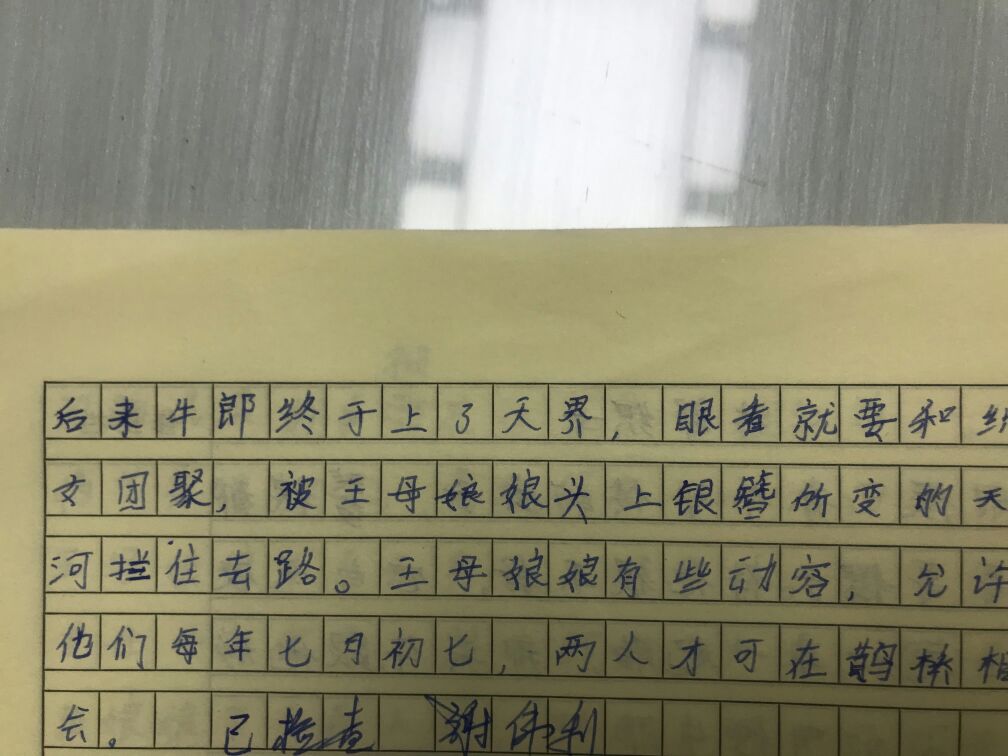 后来牛郎终于上了天界,眼看就要和织
女团聚,被王母娘娘头上银簪所变的天
河拦住去路。王母娘娘有些动容,允许
他们每年七月初七,两人才可在鹊桥相
会。 已检查 谢伟利